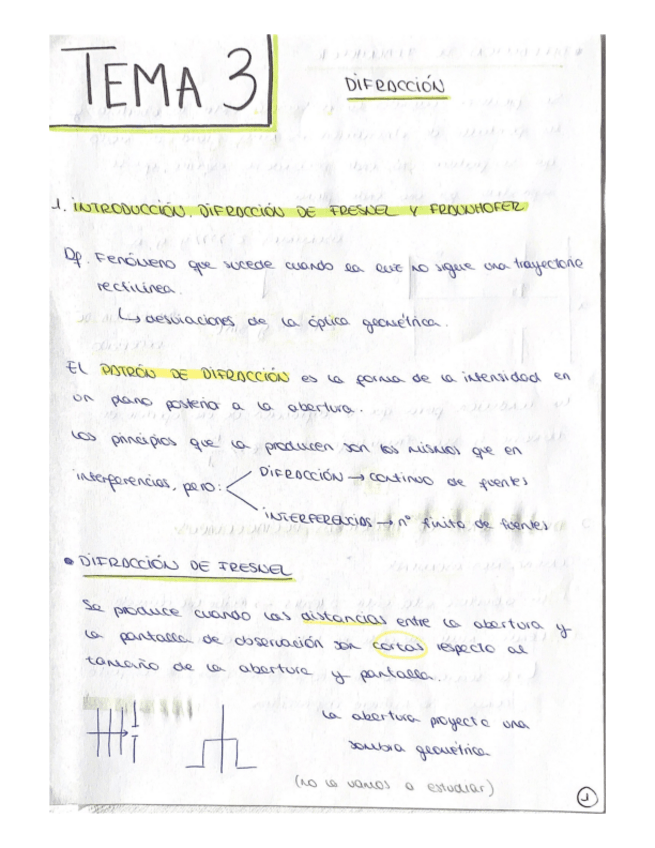 TEMA 3
DIFRACCIÓN
1. INTRODUCCIÓN. DIFRACCIÓN DE FRESNEL Y FRAUNHOFER
Df. Fenómeno que sucede cuando la luz no sigue una trayectoria
rectilínea.
↳ desviaciones de la óptica geométrica.
El PATRÓN DE DIFRACCIÓN es la forma de la intensidad en
un plano posterior a la abertura.
Los principios que la producen son los mismos que en
interferencias, pero:
DIFRACCIÓN → continuo de fuentes
INTERFERENCIAS → nº finito de fuentes
• DIFRACCIÓN DE FRESNEL
Se produce cuando las distancias entre la abertura y
la pantalla de observación son cortas respecto al
tamaño de la abertura y pantalla.
La abertura proyecta una
sombra geométrica
(no la vamos a estudiar)
1